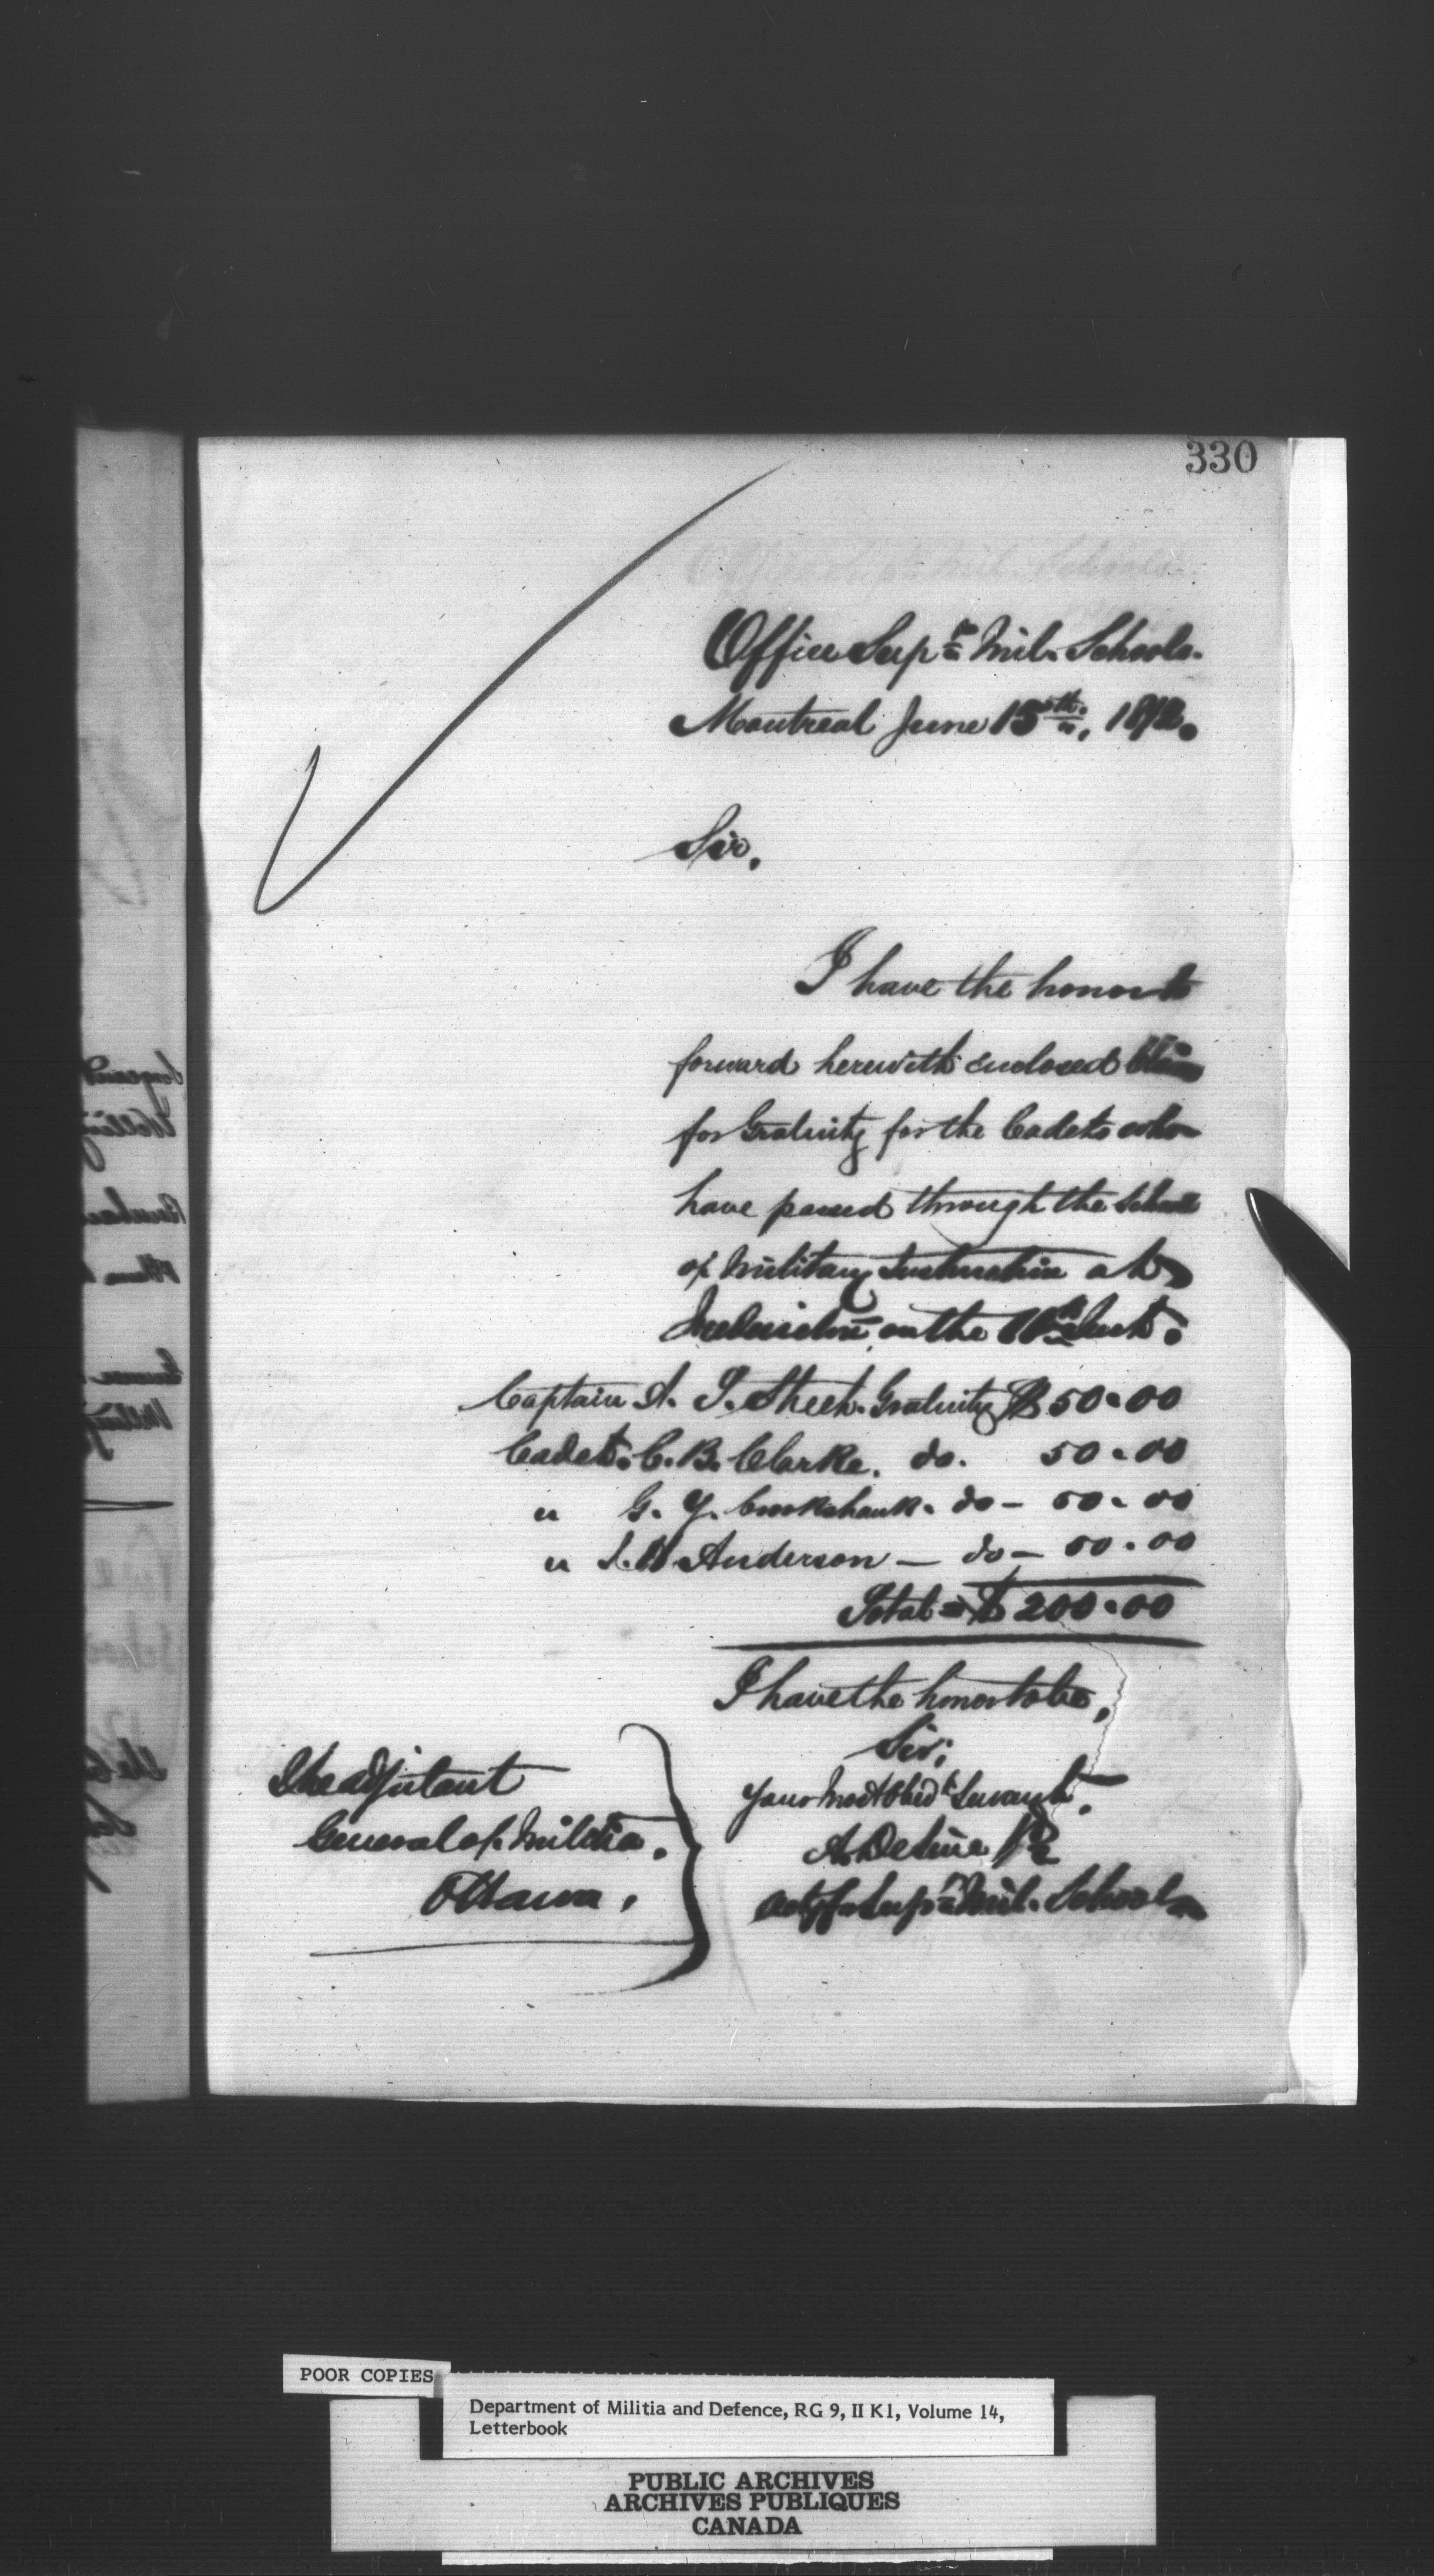 330
Office Supt Mil. Schools.
Montreal June 15th, 1872.
Sir,
I have the honor to
forward herewith enclosed Claim
for Gratuity for the Cadets who
have passed through the School
of Military Instruction at
Fredericton, on the inst.
Captain A. T. Gratuity $50.00
Cadet. C. B. Clarke. do. 50.00
" G. Y. Crookshank. do - 50.00
" Anderson - do - 50.00
Total = $ 200.00
I have the honor to be,
Sir;
Your Most Obedt Servant,
The Adjutant
General of Militia.
Ottawa.
Actg Supt Mil. Schools
POOR COPIES
Department of Militia and Defence, RG 9, II K1, Volume 14,
Letterbook
PUBLIC ARCHIVES
ARCHIVES PUBLIQUES
CANADA